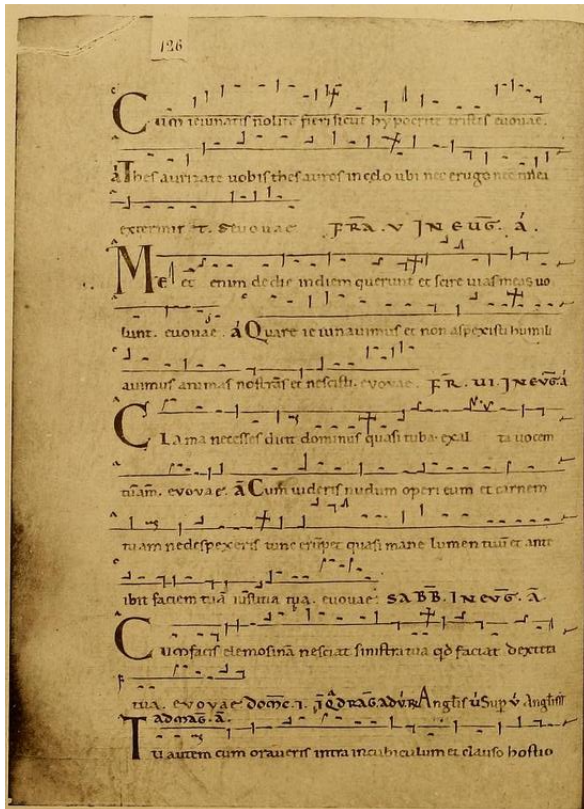 126
Cum ieiunatis nolite fieri sicut hypocrite tristes euouae.
a Thesaurizate uobis thesauros in celo ubi nec erugo nec tinea
exterminat euouae FRA. V IN EUG. A.
Me et enim de die in diem querunt et scire uias meas uo
lunt. euouae. a Quare ieiunauimus et non aspexisti humili
auimus animas nostras et nescisti. euouae. FR. VI. IN EUG. a
Clama ne cesses dicit dominus quasi tuba exal ta uocem
tuam. evovae. a Cum uideris nudum operi eum et carnem
tuam ne despexeris tunc erumpet quasi mane lumen tuum et ante
ibit faciem tua iustitia tua. euouae: SABB. IN EVG. A.
Cum facis elemosina nesciat sinistra tua qd faciat dextera
tua. evovae
AD MAG. A.
Tu autem cum oraueris intra in cubiculum et clauso hostio